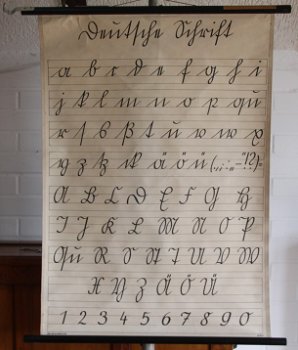 Deutsche Schrift
a b c d e f g h i
j k l m n o p qu
r ſ s ß t u v w x
y z tz ck ä ö ü (.,:;-="!?)
A B C D E F G H
I J K L M N O P
Qu R S St T U V W
X Y Z Ä Ö Ü
1 2 3 4 5 6 7 8 9 0